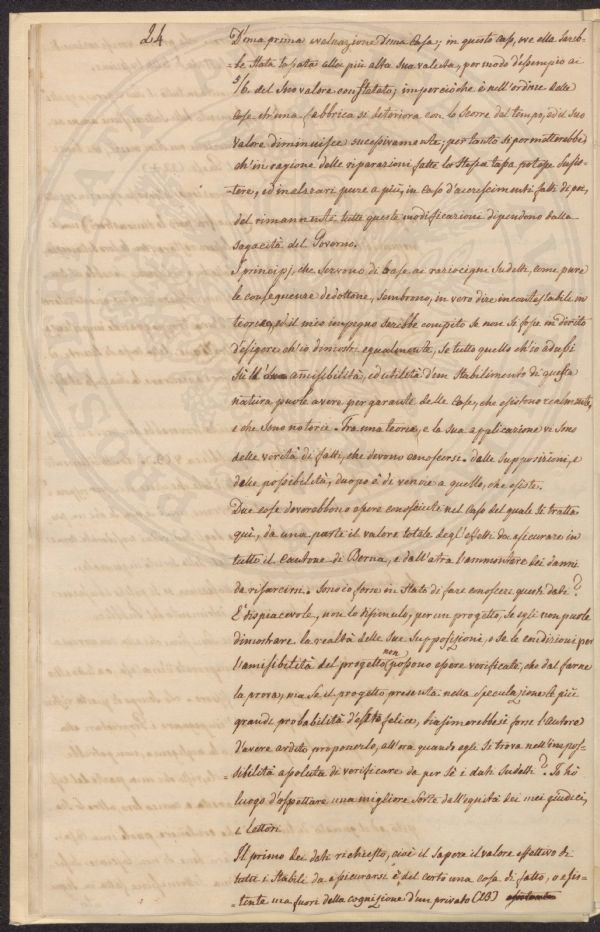 24
D'una prima evaluazione d'una Casa; in questo caso, ove ella sareb-
-be stata tassata alla più alta sua valuta, per modo d'esempio ai
5/6. del suo valore constatato; imperciochè è nell'ordine delle
cose ch'una fabbrica si deteriora con lo scorre del tempo, ed il suo
valore diminuisce sucessivamente; per tanto si permetterebbe
ch'in ragione delle riparazioni fatte lo stessa tassa potesse sussis-
-tere, ed inalzarsi pure a più, in caso d'accrescimenti fatti di poi,
del rimannente tutte queste modificazione dipendono dalla
sagacità del Governo.
I principj, che servono di base ai raziocinj sudetti, come pure
le conseguenze dedottone, sembrono, in vero dire incontestabile in
teoria, ed il mio impegno sarebbe compito se non si fosse in diritto
d'esigere ch'io dimostri egualmente, se tutto quello ch'io adussi
sull' amissibilità, ed utilità d'un stabilimento di questa
natura puole avere per garante delle cose, che esistono realmente,
e che sono notorie. Tra una teoria, e la sua applicazione vi sono
delle verità di fatti, che devono conoscersi. dalle supposizioni, e
dalle possibilità, duopo è di venire a quello, che esiste.
Due cose doverebbono essere conosciute nel caso del quale si tratta
quì, da una parte il valore totale degl'effetti da assicurare in
tutto il Cantone di Berna, e dall'atra l'ammontare dei danni
da risarcirsi. Sono io forse in stato di fare conoscere questi dati?
E' dispiacevole, non lo dissimulo, per un progetto, se egli non puole
dimostrare la realtà delle sue supposizioni, o se le condizioni per
l'amissibilità del progetto non possono essere verificate, che dal farne
la prova; ma se il progetto presenta nella speculazione le più
grandi probabilità d'esito felice, biasimerebbesi forse l'autore
d'avere ardito proporerlo, all'ora quando egli si trova nell'impos-
-sibilità assoluta di verificare da per sè i dati sudetti? Io hò
luogo d'aspettare una migliore sorte dall'equità dei miei giudici,
e lettori.
Il primo dei dati richiesto, cioè il sapere il valore effettivo di
tutti i stabili da assicurarsi è del certo una cosa di fatto, o esis-
-tente ma fuori della cognizione d'un privato (2B)